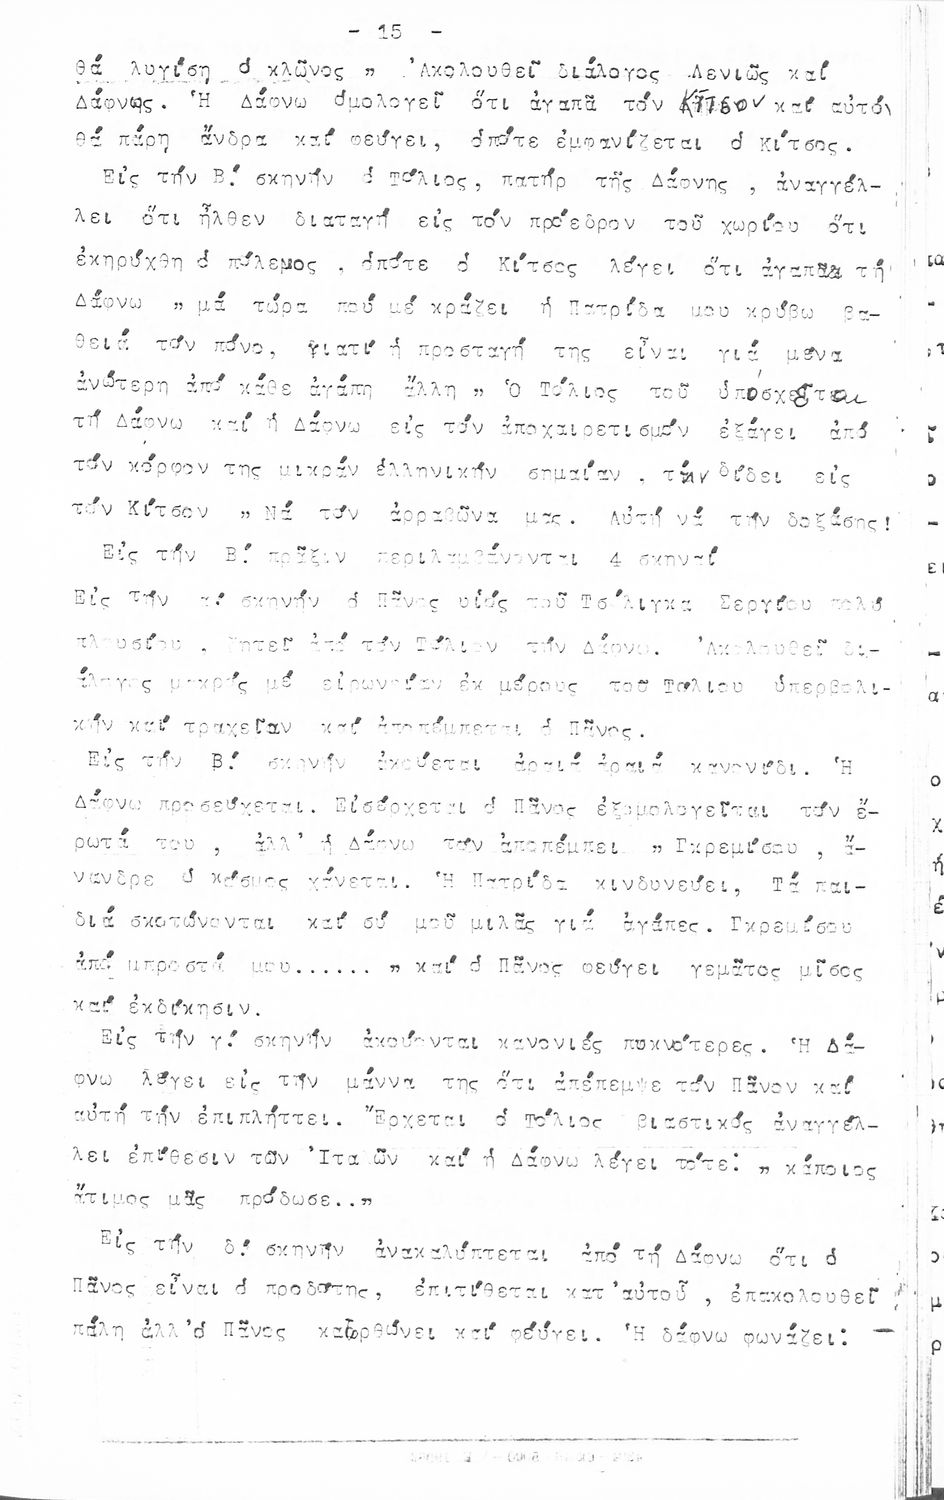 - 15 -
θά λυγίση ὁ κλῶνος „ Ἀκολουθεῖ διάλογος Λενιῶς καί
Δάφνης. Ἡ Δάφνω ὁμολογεῖ ὅτι ἀγαπᾶ τόν Κίτσον καί αὐτόν
θά πάρη ἄνδρα καί φεύγει, ὁπότε ἐμφανίζεται ὁ Κίτσος.
Εἰς τήν Β! σκηνήν ὁ Τόλιος, πατήρ τῆς Δάφνης , ἀναγγέλ-
λει ὅτι ἦλθεν διαταγή εἰς τόν πρόεδρον τοῦ χωρίου ὅτι
ἐκηρύχθη ὁ πόλεμος , ὁπότε ὁ Κίτσος λέγει ὅτι ἀγαπᾶ τή
Δάφνω „ μά τώρα πού μέ κράζει ἡ Πατρίδα μου κρύβω βα-
θειά τόν πόνο, γιατί ἡ προσταγή της εἶναι γιά μένα
ἀνώτερη ἀπό κάθε ἀγάπη ἄλλη „ Ὁ Τόλιος τοῦ ὑπόσχεται
τή Δάφνω καί ἡ Δάφνω εἰς τόν ἀποχαιρετισμόν ἐξάγει ἀπό
τόν κόρφον της μικράν ἑλληνικήν σημαίαν , τήν δίδει εἰς
τόν Κίτσον „ Νά τόν ἀρραβῶνα μας. Αὐτή νά τήν δοξάσης!
Εἰς τήν Β! πρᾶξιν περιλαμβάνονται 4 σκηναί
Εἰς τήν α! σκηνήν ὁ Πᾶνος υἱός τοῦ Τσέλιγκα Σεργίου πολύ
πλουσίου , ζητεῖ ἀπό τόν Τόλιον τήν Δάφνω. Ἀκολουθεῖ δι-
άλογος μακρός μέ εἰρωνείαν ἐκ μέρους τοῦ Τολιου ὑπερβολι-
κήν καί τραχεῖαν καί ἀποπέμπεται ὁ Πᾶνος.
Εἰς τήν Β! σκηνήν ἀκούεται ἀραιά ἀραιά κανονίδι. Ἡ
Δάφνω προσεύχεται. Εἰσέρχεται ὁ Πᾶνος ἐξομολογεῖται τόν ἔ-
ρωτά του , ἀλλ' ἡ Δάφνω τόν ἀποπέμπει „ Γκρεμίσου , ἄ-
νανδρε ὁ κόσμος χάνεται. Ἡ Πατρίδα κινδυνεύει, Τά παι-
διά σκοτώνονται καί σύ μοῦ μιλᾶς γιά ἀγάπες. Γκρεμίσου
ἀπό μπροστά μου...... „ καί ὁ Πᾶνος φεύγει γεμᾶτος μῖσος
καί ἐκδίκησιν.
Εἰς τήν γ! σκηνήν ἀκούονται κανονιές πυκνότερες. Ἡ Δά-
φνω λέγει εἰς τήν μάννα της ὅτι ἀπέπεμψε τόν Πᾶνον καί
αὐτή τήν ἐπιπλήττει. Ἔρχεται ὁ Τόλιος βιαστικός ἀναγγέλ-
λει ἐπίθεσιν τῶν Ἰταῶν καί ἡ Δάφνω λέγει τότε: „ κάποιος
ἄτιμος μᾶς πρόδωσε..„
Εἰς τήν δ! σκηνήν ἀνακαλύπτεται ἀπό τή Δάφνω ὅτι ὁ
Πᾶνος εἶναι ὁ προδότης, ἐπιτίθεται κατ'αὐτοῦ , ἐπακολουθεῖ
πάλη ἀλλ'ὁ Πᾶνος καορθώνει καί φεύγει. Ἡ δάφνω φωνάζει: -